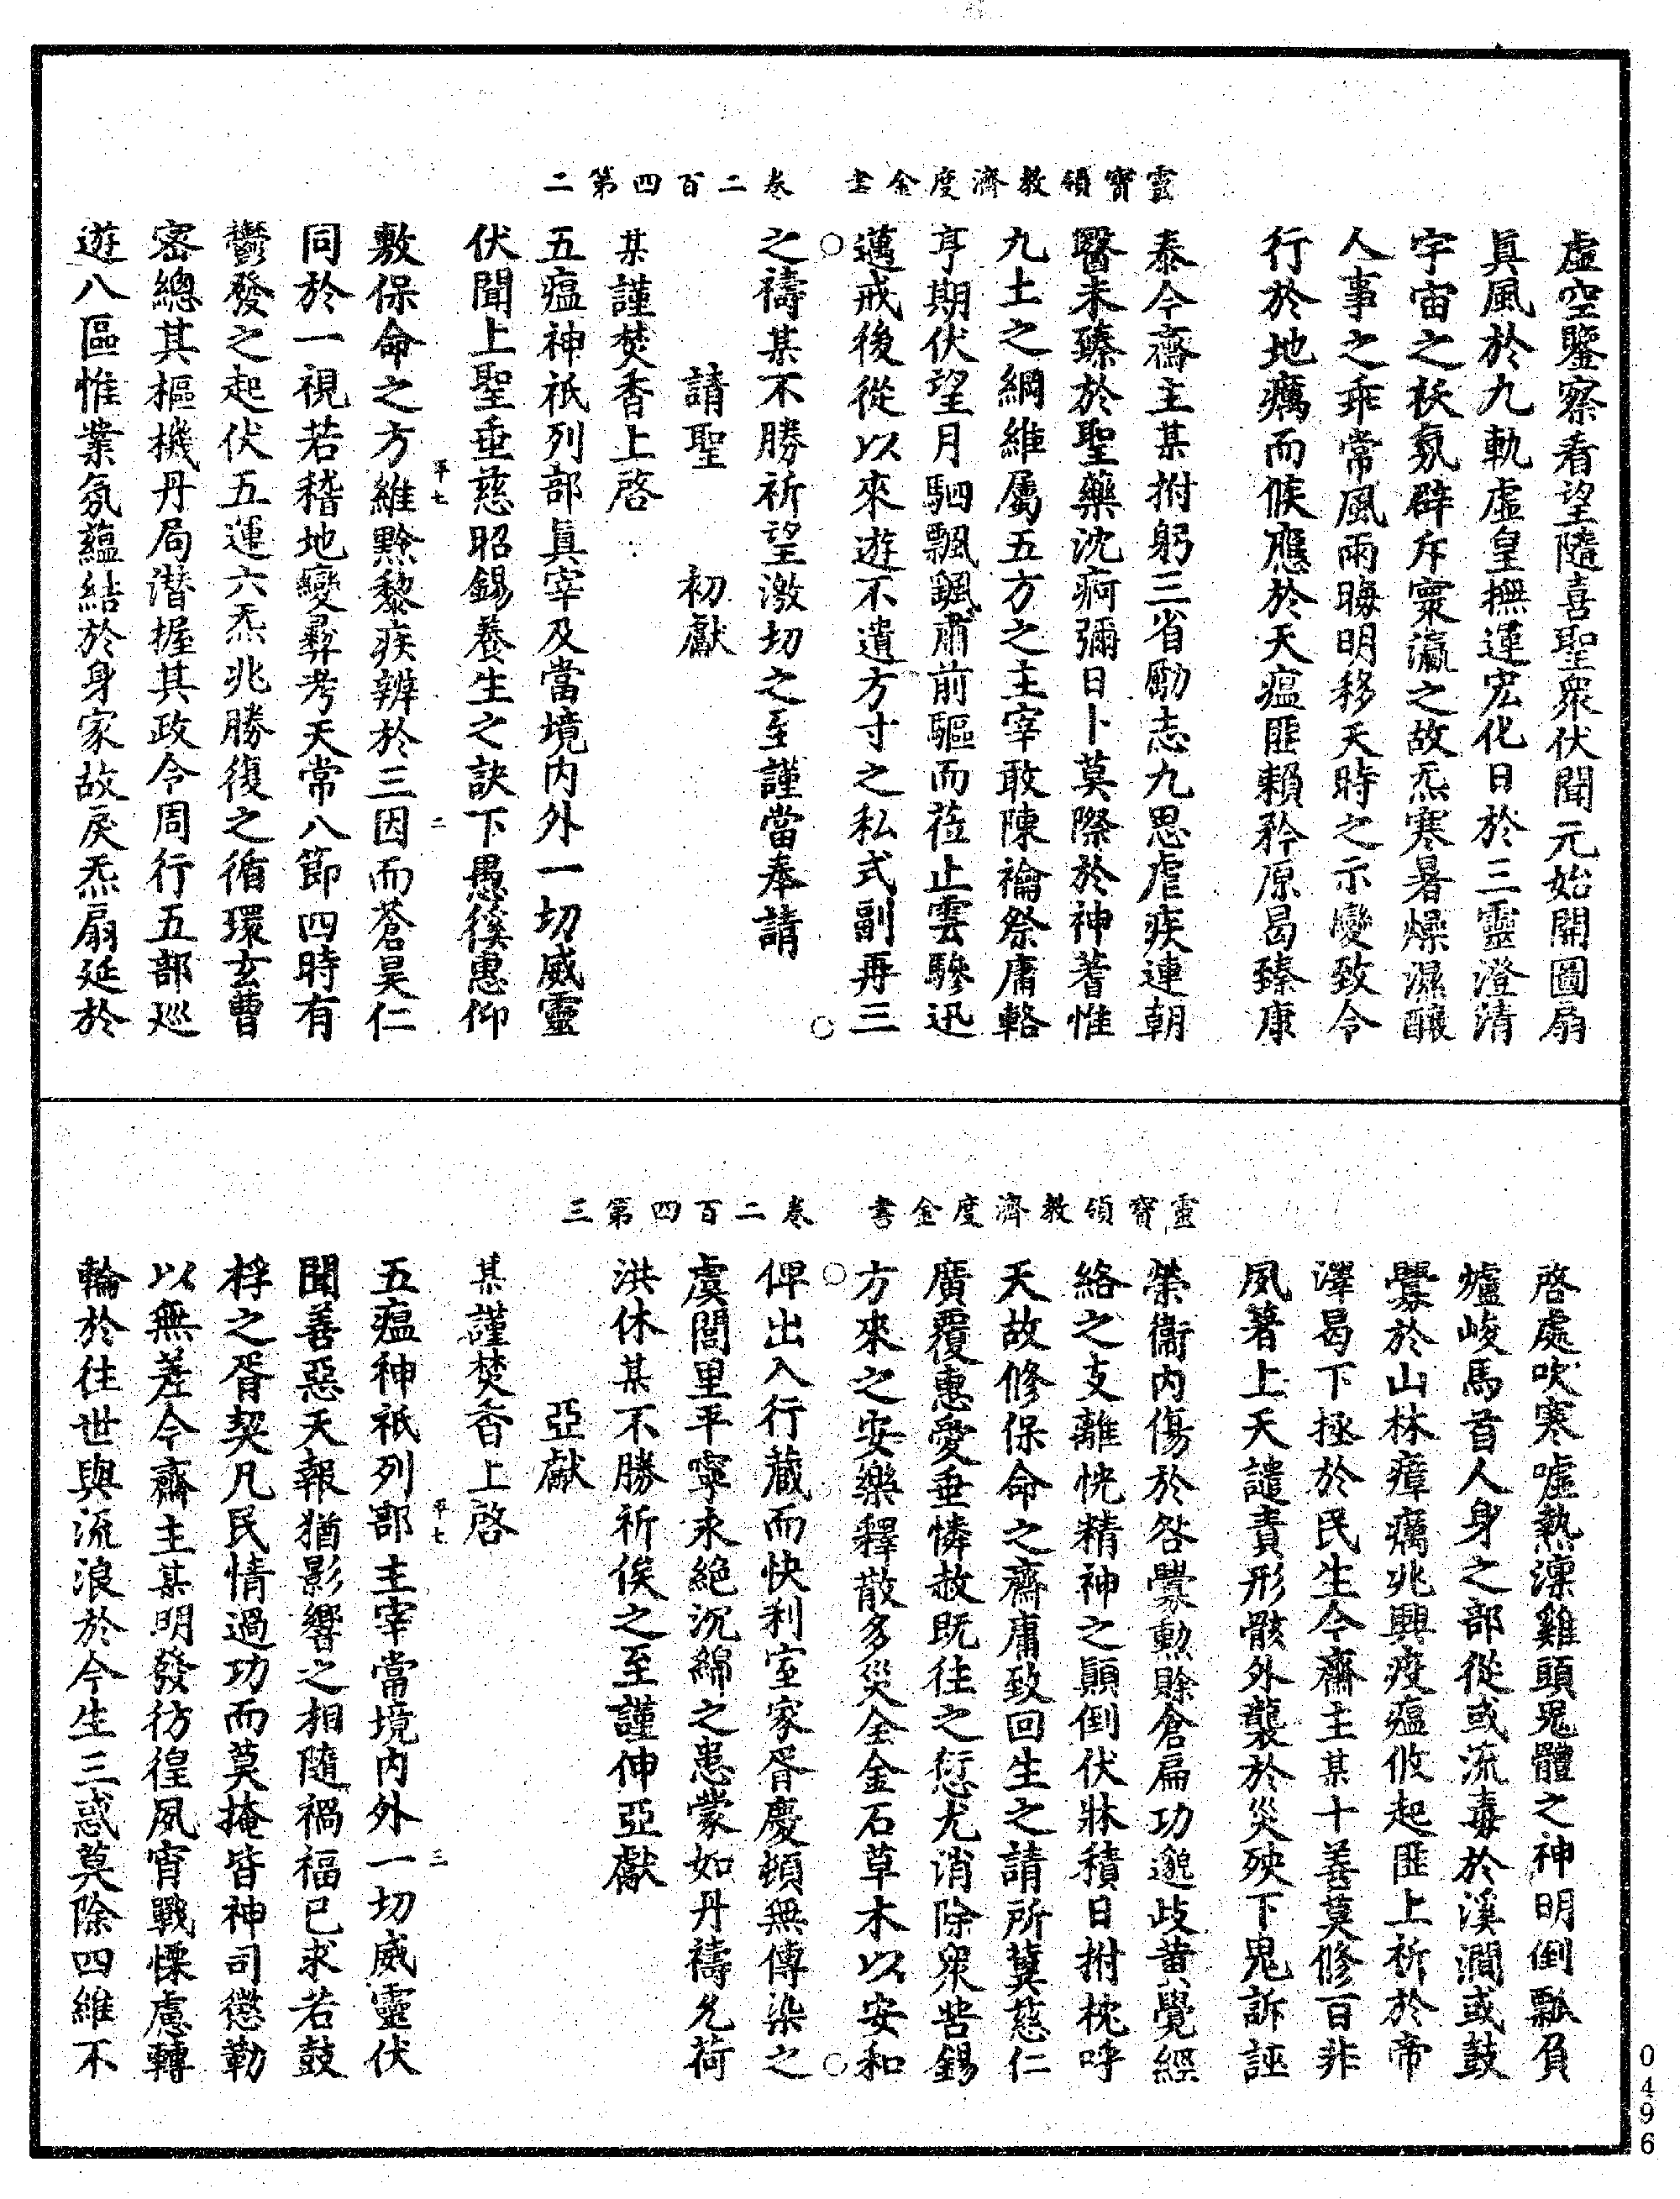 靈寶領教濟度金書　卷二百四第二
虛空鑒察看望隨喜聖衆伏聞元始開圖扇
眞風於九軌虛皇撫運宏化日於三靈澄清
宇宙之祅氛辟斥寰瀛之故炁寒暑燥濕釀
人事之乖常風雨晦明移天時之示變致令
行於地癘而候應於天瘟匪賴矜原曷臻康
泰今齋主某拊躬三省勵志九思虐疾連朝
醫未臻於聖藥沈痾彌日卜莫際於神蓍惟
九土之綱維屬五方之主宰敢陳禬祭庸輅
亨期伏望月駟飄颻肅前驅而蒞止雲驂迅
邁戒後從以來遊不遺方寸之私式副再三
之禱某不勝祈望激切之至謹當奉請
請聖　　初獻
某謹焚香上啓
五瘟神祇列部眞宰及當境內外一切威靈
伏聞上聖垂慈昭錫養生之訣下愚徯惠仰
敷保命之方維黔黎疾辨於三因而蒼昊仁
同於一視若稽地變彛考天常八節四時有
鬱發之起伏五運六炁兆勝復之循環玄曹
密總其樞機丹局潛握其政令周行五部巡
遊八區惟業氛蘊結於身家故戾炁扇延於
平七　二
靈寶領教濟度金書　卷二百四第三
啓處吹寒噓熱凜雞頭鬼體之神明倒瓢負
爐峻馬首人身之部從或流毒於溪澗或鼓
釁於山林瘴癘兆興疫瘟攸起匪上祈於帝
澤曷下拯於民生今齋主某十善莫修百非
夙著上天譴責形骸外襲於災殃下鬼訴誣
榮衞內傷於咎釁勲賒倉扁功邈歧黃覺經
絡之支離恍精神之顚倒伏牀積日拊枕呼
天故修保命之齋庸致回生之請所冀慈仁
廣覆惠愛垂憐赦既往之愆尤消除衆苦錫
方來之安樂釋散多災全金石草木以安和
俾出入行藏而快利室家胥慶頓無傳染之
虞閭里平寧永絕沉綿之患蒙如丹禱允荷
洪休某不勝祈俟之至謹伸亞獻
亞獻
某謹焚香上啓
五瘟神祇列部主宰當境內外一切威靈伏
聞善惡天報猶影響之相隨禍福已求若鼓
桴之胥契凡民情過功而莫掩皆神司懲勸
以無差今齋主某明發彷徨夙宵戰慄慮轉
輪於往世與流浪於今生三惑莫除四維不
平七　三
0496